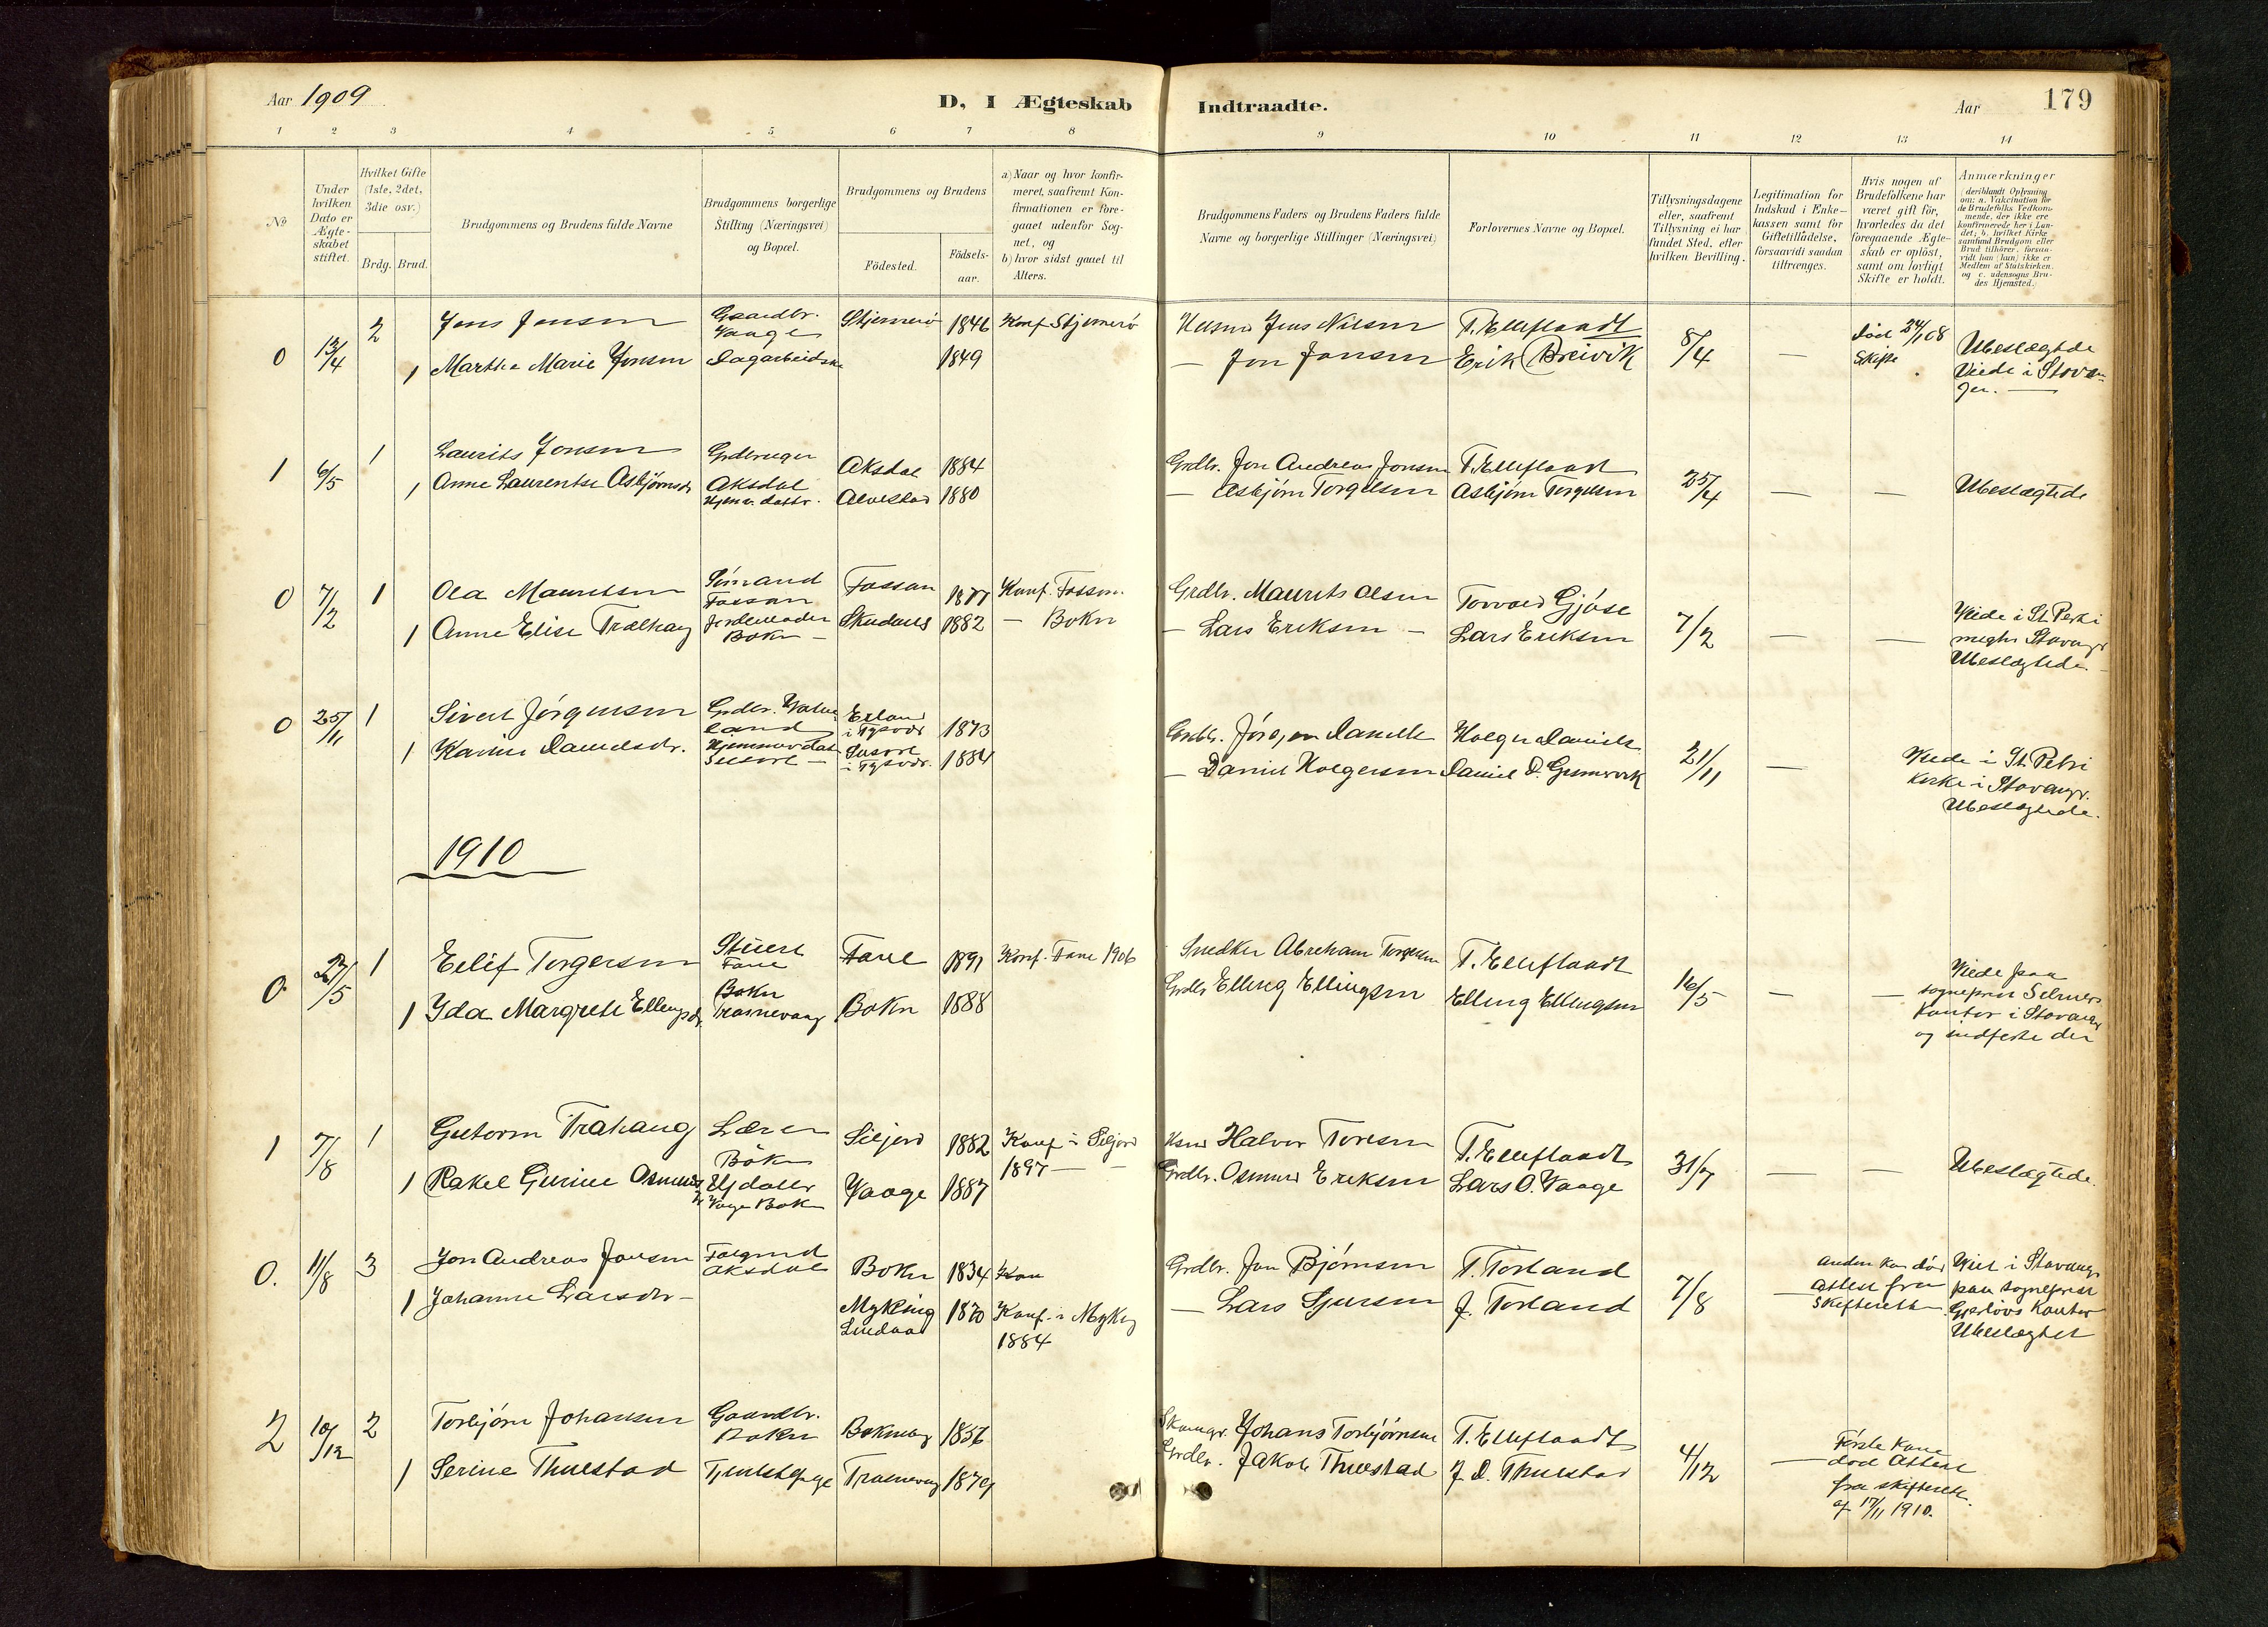 Aar 1909
D, I Ægteskab Indtraadte.
Aar
179
1 2 3 4 5 6 7 8 9 10 11 12 13 14
No
Under hvilken Dato er Ægteskabet stiftet.
Hvilket Gifte (1ste, 2det, 3die osv.)
Brdg. Brud.
Brudgommens og Brudens fulde Navne
Brudgommens borgerlige Stilling (Næringsvei) og Bopæl.
Brudgommens og Brudens
Födested.
Födselsaar.
a) Naar og hvor konfirmeret, saafremt Konfirmationen er foregaaet udenfor Sognet, og
b) hvor sidst gaaet til Alters.
Brudgommens Faders og Brudens Faders fulde Navne og borgerlige Stillinger (Næringsvei)
Forlovernes Navne og Bopæl.
Tillysningsdagene eller, saafremt Tillysning ei har fundet Sted, efter hvilken Bevilling.
Legitimation for Indskud i Enkekassen samt for Giftetilladelse, forsaavidt saadan tiltrænges.
Hvis nogen af Brudefolkene har været gift för, hvorledes da det foregaaende Ægteskab er oplöst, samt om lovligt Skifte er holdt.
Anmærkninger (deriblandt Oplysning om: a. Vakcination for de Brudefolks Vedkommende, der ikke ere konfirmerede her i Landet; b. hvilket Kirkesamfund Brudgom eller Brud tilhörer, forsaavidt han (hun) ikke er Medlem af Statskirken, og c. udensogns Brudes Hjemsted.)
0 13/4 2 Jens Jensen Gaardbr. Vaage Stjernerö 1846 Konf Stjernerö Jens Nilsen T. Elleflaadt 8/4 — död 24/1 08 Skifte Ubeslægtede
1 Marthe Marie Jonsen Dagarbeidske 1849 — Jon Jonsen Erik Breivik Viede i Stavanger. —
1 6/5 1 Laurits Jonsen Grdbruger Aksdal 1884 Grdbr. Jon Andreas Jonsen T. Elleflaadt 25/4 — — Ubeslægtede
1 Anne Laurentse Asbjørnsdr Aksdal Hjemv. dattr. Alvestad 1880 — Asbjørn Torgilsen Asbjørn Torgilsen
0 7/2 1 Ola Mauritsen Sömand Fossan Fossan 1877 Konf. Fossan Grdbr. Maurits Olsen Torvald Gjöse 7/2 — — Viede i St Petri
1 Anne Elise Trælhaug Jordemoder Bokn — Skudenes 1882 — Bokn — Lars Eriksen — Lars Eriksen Ubeslægtede
0 25/11 1 Sivert Jörgensen Grdbr. i Tysvær 1873 Grdbr. Jörgen Daniels. Holger Daniels. 21/11 — Viede i St. Petri
1 Karine Danielsdr. i Tysvær. 1884 — Daniel Holgersen Daniel D. Kirke i Stavanger. Ubeslægtede.
1910
0. 27/5 1 Eilif Torgersen Stuert Fane Fane 1891 Konf. Fane 1906 Snedker Abraham Torgersen T. Elleflaadt 16/5 — — Viede paa
1 Ida Margrete Ellingsdr. Bokn Trosnevaag Bokn 1888 Grdbr Elling Ellingsen Elling Ellingsen sogneprest Selmers Kontor i Stavanger og indförte der
1 7/8 1 Gutorm Trahaug Lærer Bokn Siljord 1882 Konf i Siljord 1897 — Halvor Toresen T. Elleflaadt 31/7 — — Ubeslægtede.
1 Rakel Gurine Osmunds dr Hjdattr Vaage Bokn Vaage 1887 Grdbr. Osmund Eriksen Lars O. Vaage
0. 11/8 3 Jon Andreas Jonsen Folgmd Aksdal Bokn 1834 Grdbr. Jon Bjørnsen T. Torland 7/8 — anden kone död attest fra Skifteretten. Viet i Stavanger
1 Johanne Larsdr — Mykling Lindaas 1870 Konf. i Mykling 1884 — Lars Sjursen J. Torland paa sogneprest Kontor Ubeslægtet
2 10/12 2 Torbjørn Johansen Gaardbr. Bokn 1856 Johans Torbjørnsen T. Elleflaadt 4/12 — Förste Kone död Attest
1 Serine Thuestad Trosnevaag 1879 Grdbr. Jakob Thuestad J. D. Thuestad fra skifterett. af 17/11 1910.